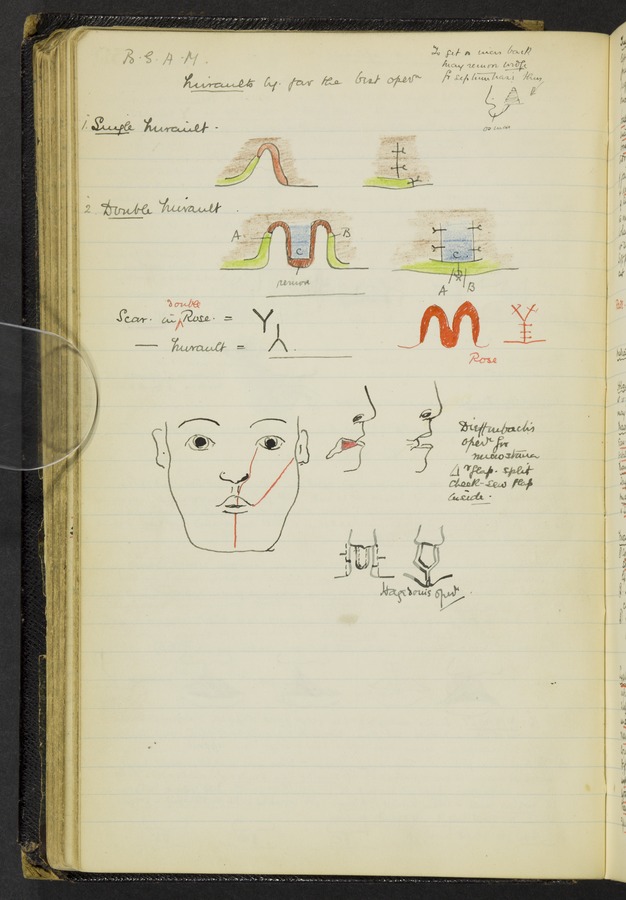 B.G.A.M.
To get a man back
may remove wedge
fr septum than skin
Mirault's by far the best opern
1 Single Mirault.
2 Double Mirault.
A B
C
remove
C
A B
double
Scar. in Rose. =
— Mirault =
Rose
Dieffenbach's
opern for
macrostoma
flap. split
cheek - sew flap
inside.
Hagedorn's opern